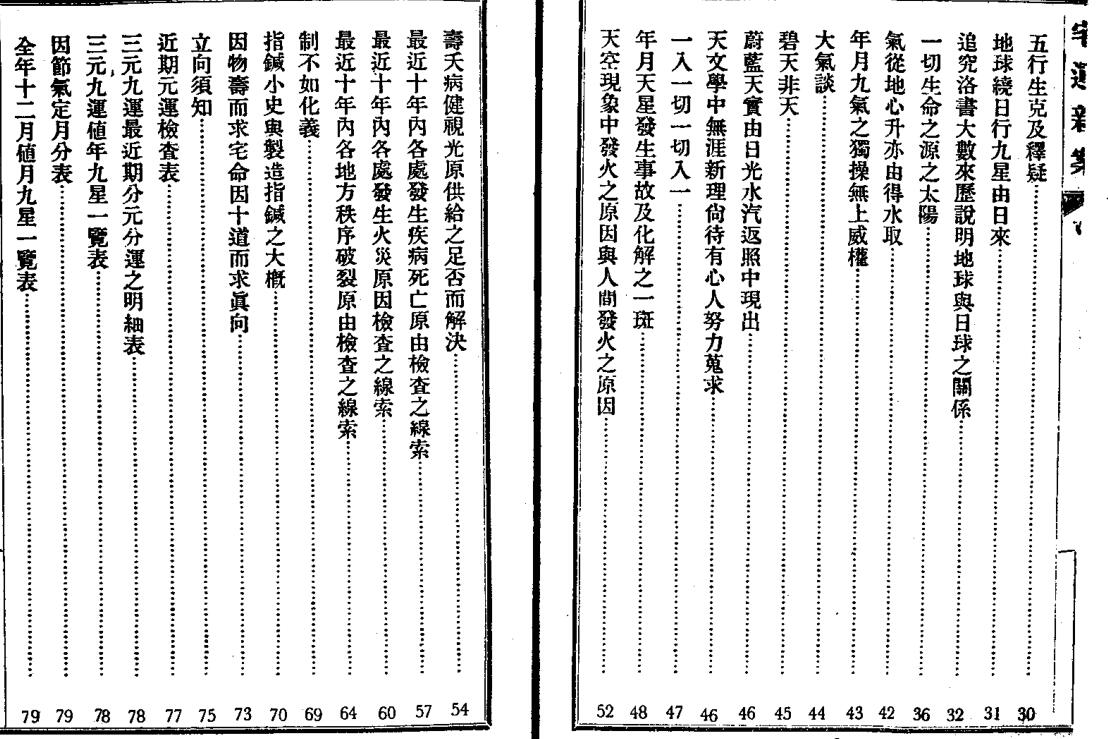 宅運新案
五行生克及釋疑 30
地球繞日行九星由日來 31
追究洛書大數來歷說明地球與日球之關係 32
一切生命之源之太陽 36
氣從地心升亦由得水取 42
年月九氣之獨操無上威權 43
大氣談 44
碧天非天 45
蔚藍天實由日光水汽返照中現出 46
天文學中無涯新理尙待有心人努力蒐求 46
一入一切一切入一 47
年月天星發生事故及化解之一斑 48
天空現象中發火之原因與人間發火之原因 52
壽夭病健視光原供給之足否而解決 54
最近十年內各處發生疾病死亡原由檢查之線索 57
最近十年內各處發生火災原因檢查之線索 60
最近十年內各地方秩序破裂原由檢查之線索 64
制不如化義 69
指鍼小史與製造指鍼之大槪 70
因物壽而求宅命因十道而求眞向 73
立向須知 75
近期元運檢查表 77
三元九運最近期分元分運之明細表 78
三元九運値年九星一覽表 78
因節氣定月分表 79
全年十二月値月九星一覽表 79